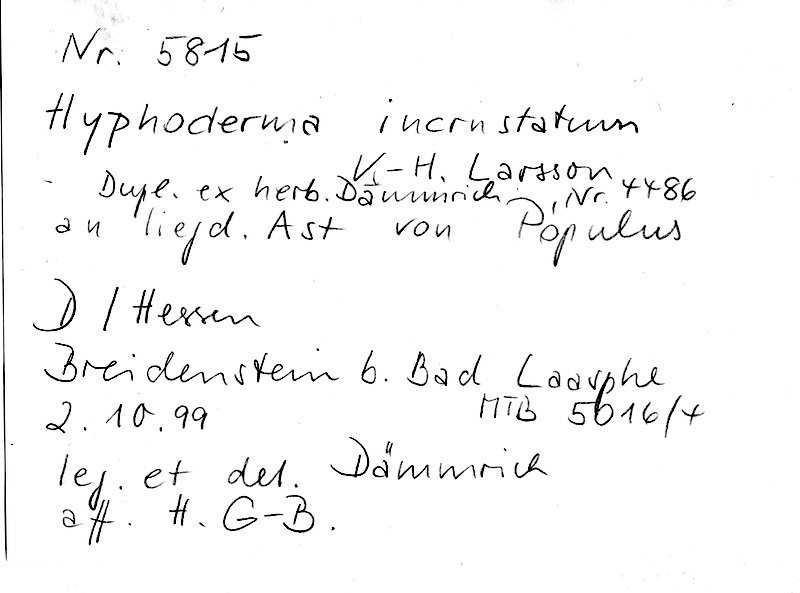 Nr. 5815
Hyphoderma incrustatum
K.-H. Larsson
Dupl. ex herb. Dämmrich, Nr. 4486
an liegd. Ast von Populus
D / Hessen
Breidenstein b. Bad Laasphe
2.10.99 MTB 5016/4
leg. et det. Dämmrich
aff. H. G-B.